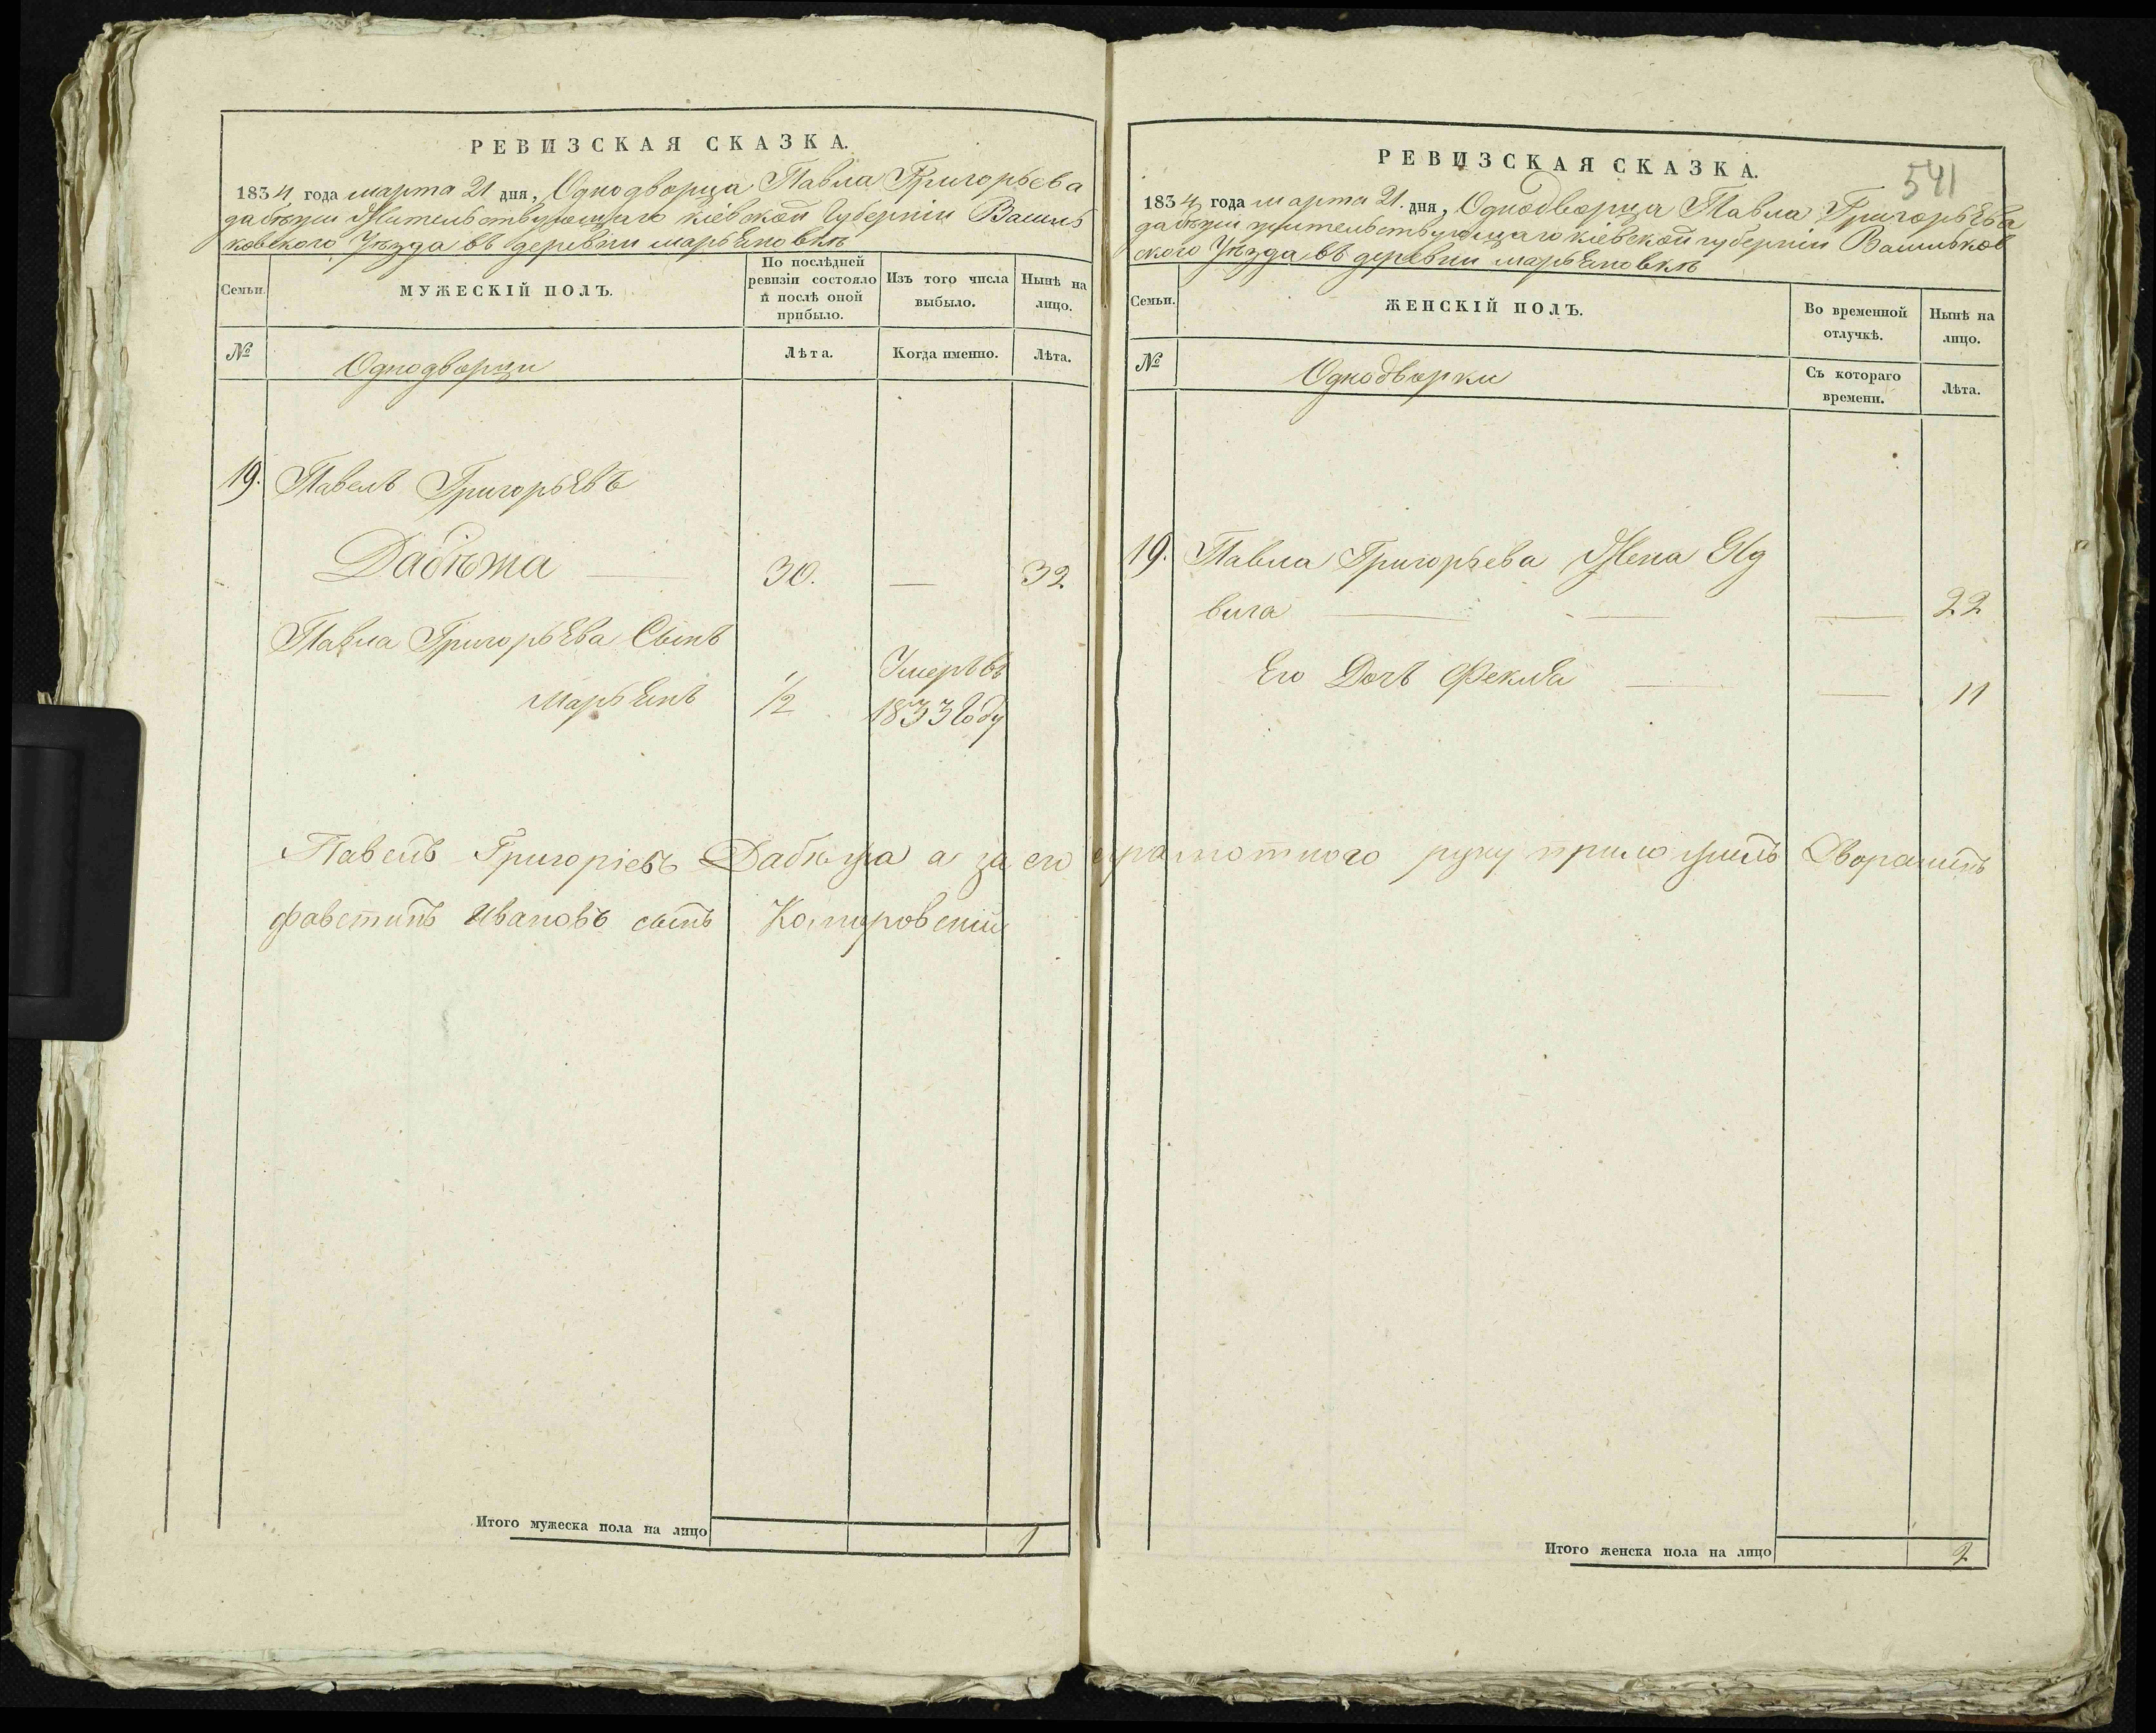 РЕВИЗСКАЯ СКАЗКА.
1834 года марта 21 дня, Однодворца Павла Григорьева
жительствующаго кіевской Губерніи Василь
ковского Уѣзда въ деревни марьяновкѣ
Семьи.
МУЖЕСКІЙ ПОЛЪ.
По послѣдней ревизіи состояло и послѣ оной прибыло.
Изъ того числа выбыло.
Нынѣ на лицо.
№
Однодворци
Лѣта.
Когда именно.
Лѣта.
19. Павелъ Григорьевъ
Дабѣжа 30. — 32
Павла Григорьева Сынъ
Умеръ въ
Марьянъ 1/2 1833 Году
Павелъ Григоріевъ Дабѣжа а за его неграмотного руку приложилъ Дворанинъ
фавстинъ Ивановъ сынъ
Итого мужеска пола на лицо 1
541
РЕВИЗСКАЯ СКАЗКА.
1834 года марта 21. дня, Однодворца Павла Григорьева
жительствующаго кіевской губерніи Васильков
ского Уѣзда въ деревни марьяновкѣ
Семьи.
ЖЕНСКІЙ ПОЛЪ.
Во временной отлучкѣ.
Нынѣ на лицо.
№
Однодворки
Съ котораго времени.
Лѣта.
19. Павла Григорьева Жена Яд
вига — — — 22
Его Дочь Фекла — — 11
Итого женска пола на лицо 2